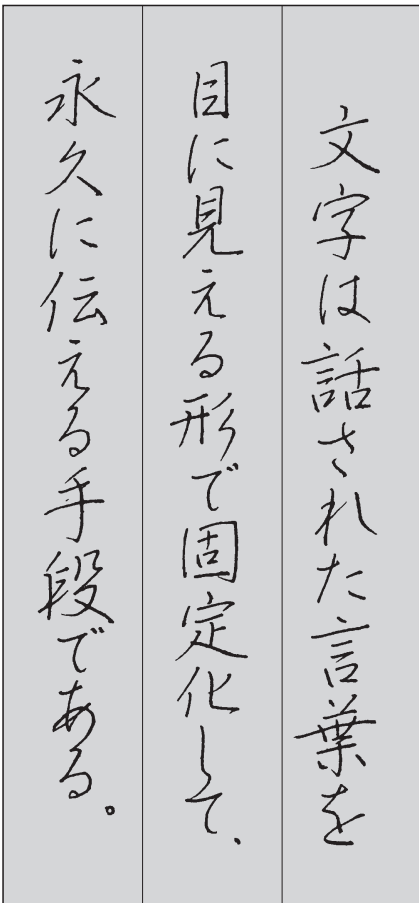 文字は話された言葉を
目に見える形で固定化して、
永久に伝える手段である。